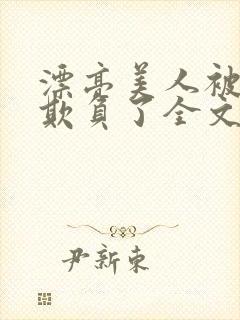 漂亮美人被
欺负了全文
尹新东